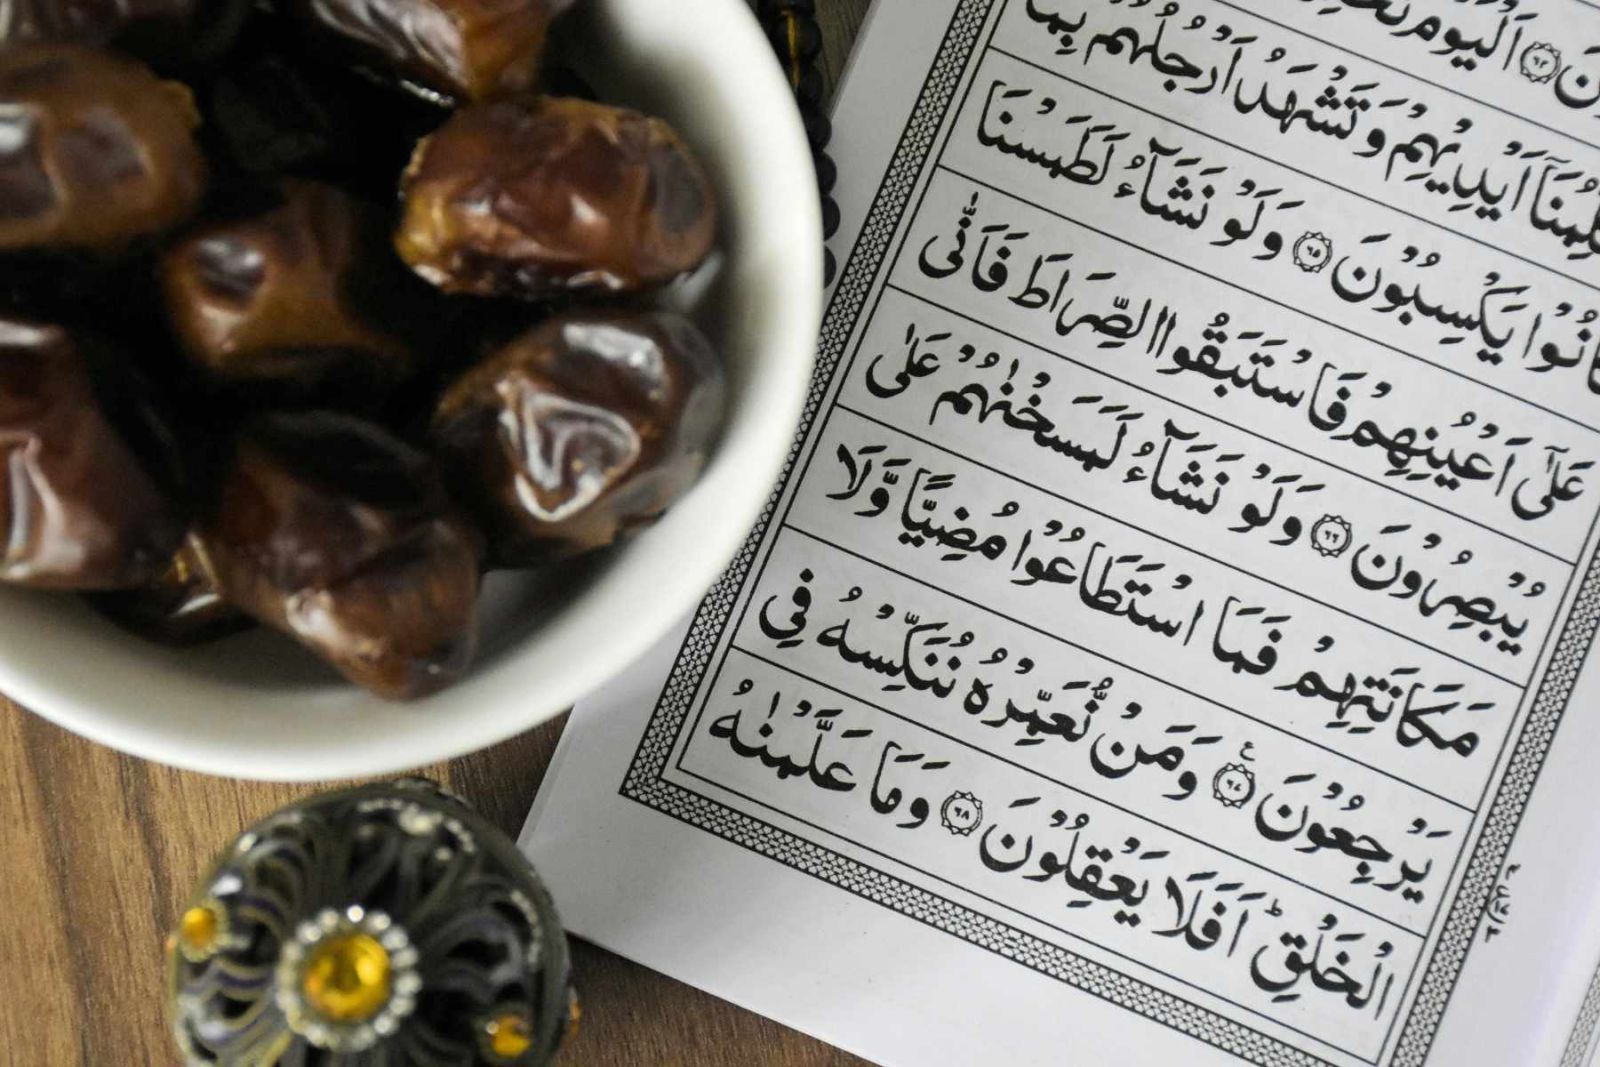 ﴿٦٤﴾ اَلْيَوْمَ
اَيْدِيْهِمْ وَتَشْهَدُ اَرْجُلُهُمْ بِمَا
كَانُوْا يَكْسِبُوْنَ ﴿٦٥﴾ وَلَوْ نَشَآءُ لَطَمَسْنَا
عَلٰٓى اَعْيُنِهِمْ فَاسْتَبَقُوا الصِّرَاطَ فَاَنّٰى
يُبْصِرُوْنَ ﴿٦٦﴾ وَلَوْ نَشَآءُ لَمَسَخْنٰهُمْ عَلٰى
مَكَانَتِهِمْ فَمَا اسْتَطَاعُوْا مُضِيًّا وَّلَا
يَرْجِعُوْنَ ﴿٦٧﴾ ع وَمَنْ نُّعَمِّرْهُ نُنَكِّسْهُ فِى
الْخَلْقِ ؕ اَفَلَا يَعْقِلُوْنَ ﴿٦٨﴾ وَمَا عَلَّمْنٰهُ